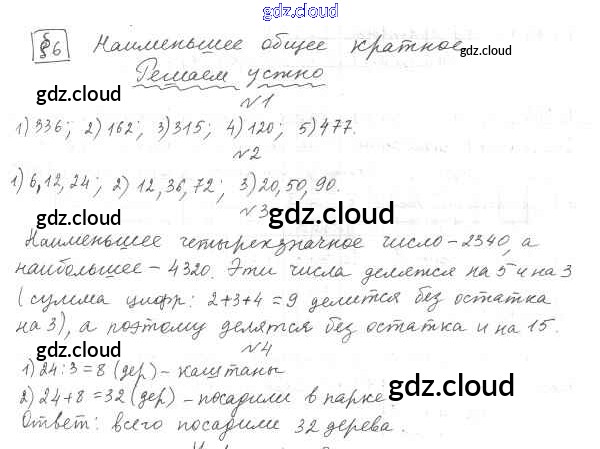 gdz.cloud
§6 Наименьшее общее кратное
gdz.cloud
Решаем устно
gdz.cloud
gdz.cloud
№1
1) 336; 2) 162; 3) 315; 4) 120; 5) 477.
№2
1) 6, 12, 24; 2) 12, 36, 72; 3) 20, 50, 90.
gdz.cloud
№3
gdz.cloud
Наименьшее четырехзначное число - 2340, а
наибольшее - 4320. Эти числа делятся на 5 и на 3
(сумма цифр: 2+3+4=9 делится без остатка
на 3), а поэтому делятся без остатка и на 15.
gdz.cloud
№4
1) 24:3=8 (дер) - каштаны
gdz.cloud
2) 24+8=32 (дер) - посадили в парке.
Ответ: всего посадили 32 дерева.